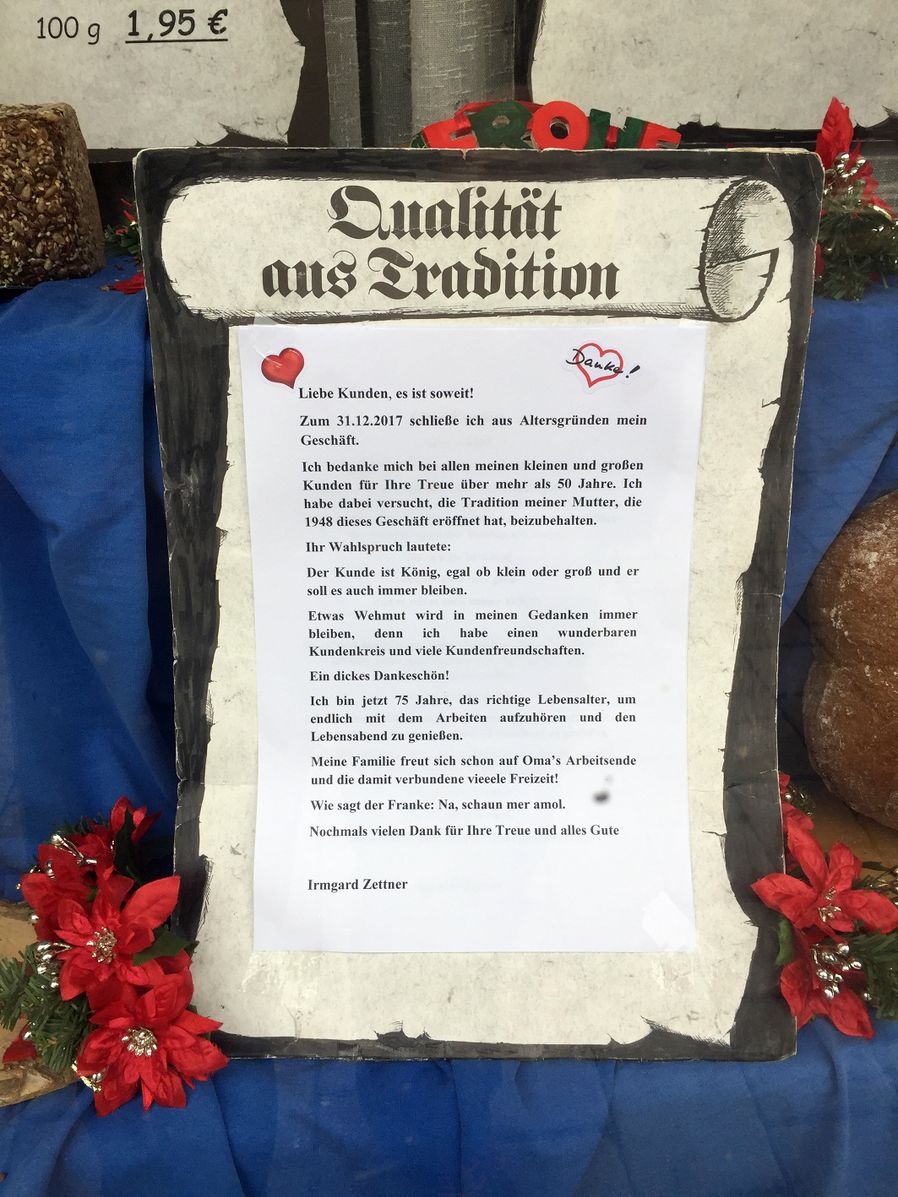 100 g 1,95 €
FROHE
Qualität
aus Tradition
Danke!
Liebe Kunden, es ist soweit!
Zum 31.12.2017 schließe ich aus Altersgründen mein
Geschäft.
Ich bedanke mich bei allen meinen kleinen und großen
Kunden für Ihre Treue über mehr als 50 Jahre. Ich
habe dabei versucht, die Tradition meiner Mutter, die
1948 dieses Geschäft eröffnet hat, beizubehalten.
Ihr Wahlspruch lautete:
Der Kunde ist König, egal ob klein oder groß und er
soll es auch immer bleiben.
Etwas Wehmut wird in meinen Gedanken immer
bleiben, denn ich habe einen wunderbaren
Kundenkreis und viele Kundenfreundschaften.
Ein dickes Dankeschön!
Ich bin jetzt 75 Jahre, das richtige Lebensalter, um
endlich mit dem Arbeiten aufzuhören und den
Lebensabend zu genießen.
Meine Familie freut sich schon auf Oma's Arbeitsende
und die damit verbundene vieeele Freizeit!
Wie sagt der Franke: Na, schaun mer amol.
Nochmals vielen Dank für Ihre Treue und alles Gute
Irmgard Zettner